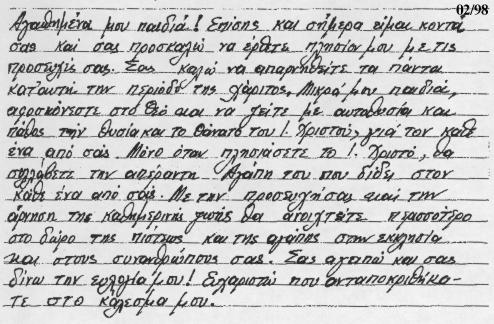 02/98
Αγαπημένα μου παιδιά! Επίσης και σήμερα είμαι κοντά
σας και σας προσκαλώ να έρθετε πλησίον μου με τις
προσευχές σας. Σας καλώ να απαρνηθείτε τα πάντα
κατ' αυτή την περίοδο της χάριτος. Μικρά μου παιδιά,
αφοσιώνεστε στο Θεό και να ζείτε με αυτοθυσία και
πάθος την θυσία και το θάνατο του Ι. Χριστού, για τον καθέ
ένα από σάς. Μόνο όταν πλησιάσετε το Ι. Χριστό, θα
συλλάβετε την απέραντη Αγάπη του που δίδει στον
κάθε ένα από σάς. Με την προσευχή σας και την
άρνηση της καθημερινής ζωής θα ανοιχτείτε περισσότερο
στο δώρο της πίστεως και της αγάπης στην εκκλησία
και στους συνανθρώπους σας. Σας αγαπώ και σας
δίνω την ευλογία μου! Ευχαριστώ που ανταποκριθήκα-
τε στο κάλεσμα μου.